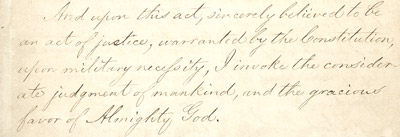 And upon this act, sincerely believed to be
an act of justice, warranted by the Constitution,
upon military necessity, I invoke the consider-
ate judgment of mankind, and the gracious
favor of Almighty God.